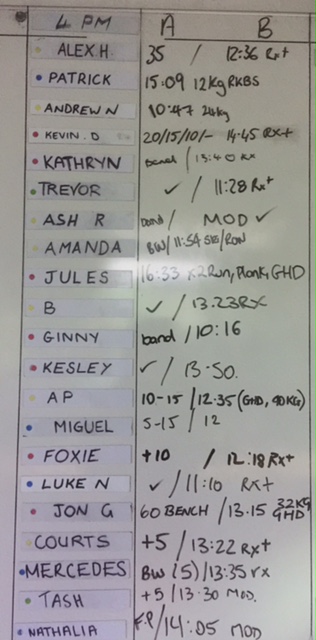 4 PM A B
ALEX H 35 / 12:36 Rx+
PATRICK 15:09 12Kg RKBS
ANDREW N 10:47 24kg
KEVIN. D 20/15/10/- 14:45 RX+
KATHRYN band / 13:40 RX
TREVOR ✓ / 11:28 Rx+
ASH R band / MOD ✓
AMANDA BW/ 11:54 /ROW
JULES 16:33 x2Run, Plank, GHD
B ✓ / 13.23RX
GINNY band / 10:16
KESLEY ✓ / 13.50.
AP 10-15 / 12:35 (GHD, 90KG)
MIGUEL 5-15 / 12
FOXIE +10 / 12:18 Rx+
LUKE N ✓ / 11:10 RX+
JON G 60 BENCH / 13.15 32KG GHD
COURTS +5 / 13:22 Rx+
MERCEDES BW (5) / 13:35 rx
TASH +5 / 13:30 MOD.
NATHALIA F.P / 14:05 MOD